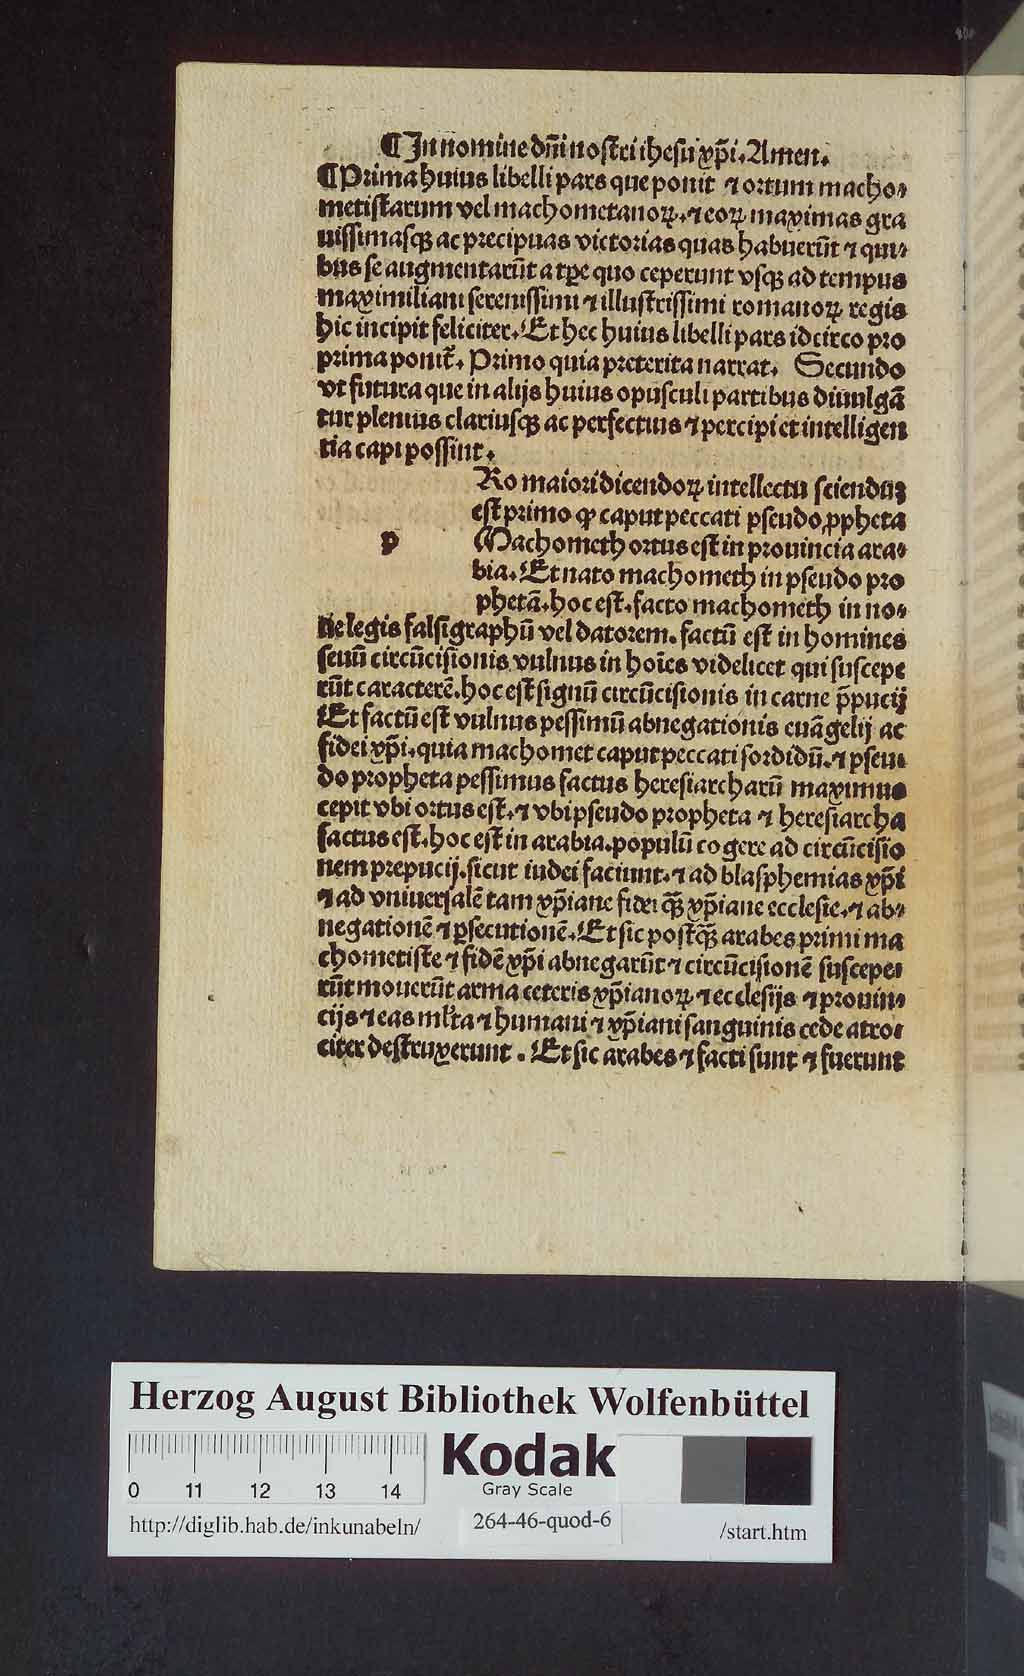 ¶ In nomine dn̄i nostri ihesu xp̄i. Amen.
¶ Prima huius libelli pars que ponit ⁊ ortum macho⸗
metistarum vel machometanoꝝ. ⁊ eoꝝ maximas gra
uissimasqꝫ ac precipuas victorias quas habuerūt ⁊ qui⸗
bus se augmentarūt a tp̄e quo ceperunt vsqꝫ ad tempus
maximiliani serenissimi ⁊ illustrissimi romanoꝝ regis
hic incipit feliciter. Et hec huius libelli pars idcirco pro
prima ponit᷑. Primo quia preterita narrat. Secundo
vt futura que in alijs huius opusculi partibus diuulgā
tur plenius clariusqꝫ ac perfectius ⁊ percipi et intelligen
tia capi possint.
Ro maiori dicendoꝝ intellectu sciendūꝫ
est primo ꝙ caput peccati pseudo ꝓpheta
p Machometh ortus est in prouincia ara⸗
bia. Et nato machometh in pseudo pro
phetā. hoc est. facto machometh in no⸗
ne legis falsigraphū vel datorem. factū est in homines
seuū circūcisionis vulnus in hoīes videlicet qui suscepe
rūt caracterē. hoc est signū circūcisionis in carne p̄pucij
Et factū est vulnus pessimū abnegationis euāgelij ac
fidei xp̄i. quia machomet caput peccati sordidū. ⁊ pseu
do propheta pessimus factus heresiarcharū maximus
cepit vbi ortus est. ⁊ vbi pseudo propheta ⁊ heresiarcha
factus est. hoc est in arabia. populū cogere ad circūcisio
nem prepucij. sicut iudei faciunt. ⁊ ad blasphemias xp̄i
⁊ ad vniuersalē tam xp̄iane fidei qꝫ̄ xp̄iane ecclesie. ⁊ ab⸗
negationē ⁊ ꝑsecutionē. Et sic postqꝫ̄ arabes primi ma
chometiste ⁊ fidē xp̄i abnegarūt ⁊ circūcisionē suscepe⸗
rūt mouerūt arma ceteris xp̄ianoꝝ ⁊ ecclesijs ⁊ prouin⸗
cijs ⁊ eas ml̄ta ⁊ humani ⁊ xp̄iani sanguinis cede atro⸗
citer destruxerunt. Et sic arabes ⁊ facti sunt ⁊ fuerunt
Herzog August Bibliothek Wolfenbüttel
Kodak
Gray Scale
0 11 12 13 14
http://diglib.hab.de/inkunabeln/
264-46-quod-6
/start.htm